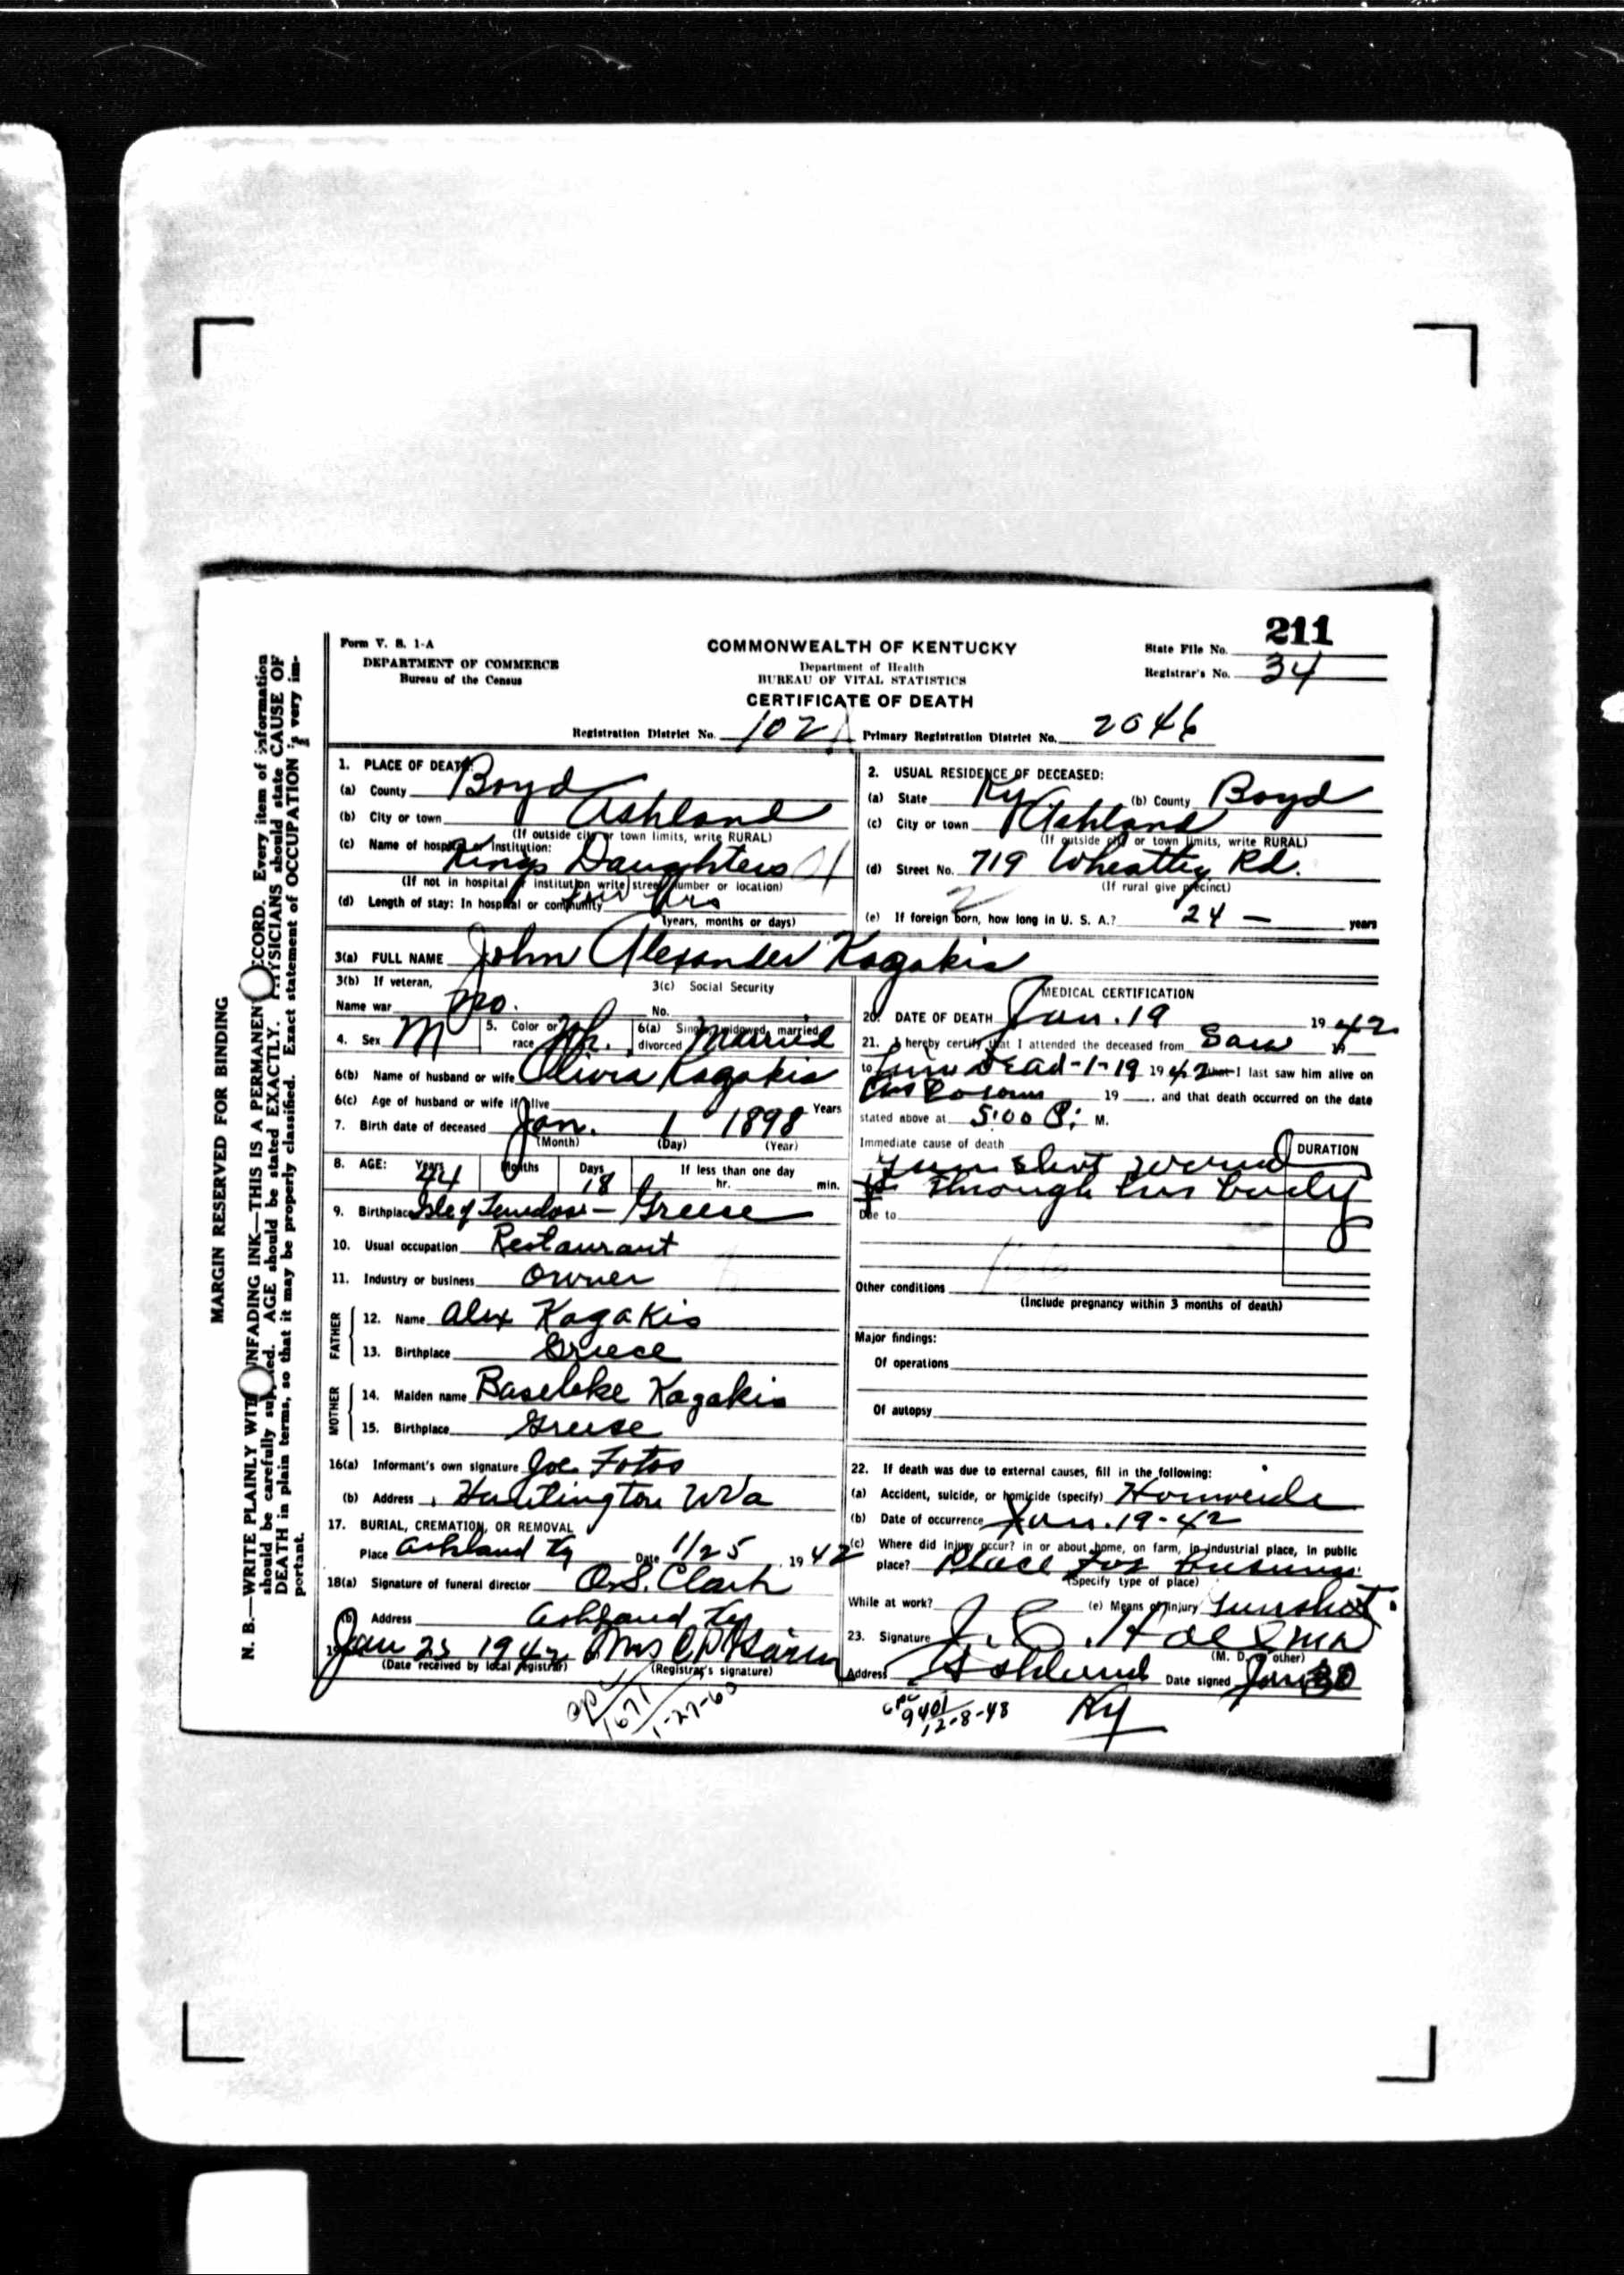 211
Form V. S. 1-A
DEPARTMENT OF COMMERCE
Bureau of the Census
COMMONWEALTH OF KENTUCKY
Department of Health
BUREAU OF VITAL STATISTICS
CERTIFICATE OF DEATH
State File No.
Registrar's No. 34
Registration District No. 102 Primary Registration District No. 2046
MARGIN RESERVED FOR BINDING
N. B.—WRITE PLAINLY WITH UNFADING INK—THIS IS A PERMANENT RECORD. Every item of information
should be carefully supplied. AGE should be stated EXACTLY. PHYSICIANS should state CAUSE OF
DEATH in plain terms, so that it may be properly classified. Exact statement of OCCUPATION is very im-
portant.
1. PLACE OF DEATH:
(a) County Boyd
(b) City or town Ashland
(If outside city or town limits, write RURAL)
(c) Name of hospital or institution:
Kings Daughters
(If not in hospital or institution write street number or location)
(d) Length of stay: In hospital or community hrs
(years, months or days)
2. USUAL RESIDENCE OF DECEASED:
(a) State Ky (b) County Boyd
(c) City or town Ashland
(If outside city or town limits, write RURAL)
(d) Street No. 719 Wheatley Rd.
(If rural give precinct)
(e) If foreign born, how long in U. S. A.? 24 — years
3(a) FULL NAME John Alexander Kagakis
3(b) If veteran,
Name war no.
3(c) Social Security
No.
4. Sex M
5. Color or race Wh.
6(a) Single, widowed, married, divorced Married
6(b) Name of husband or wife Olivia Kagakis
6(c) Age of husband or wife if alive Years
7. Birth date of deceased Jan. 1 1898
(Month) (Day) (Year)
8. AGE: Years 44 Months Days 18 If less than one day
hr. min.
9. Birthplace Isle of Tenedos — Greese
10. Usual occupation Restaurant
11. Industry or business owner
FATHER
12. Name Alex Kagakis
13. Birthplace Greece
MOTHER
14. Maiden name Baseleke Kagakis
15. Birthplace Greese
16(a) Informant's own signature Joe Fotos
(b) Address Huntington WVa
17. BURIAL, CREMATION, OR REMOVAL
Place Ashland Ky Date 1/25 1942
18(a) Signature of funeral director O.S. Clark
(b) Address Ashland Ky
Jan 23 1942 Mrs
(Date received by local registrar) (Registrar's signature)
1671
1-27-60
MEDICAL CERTIFICATION
20. DATE OF DEATH Jan. 19 1942
21. I hereby certify that I attended the deceased from Saw 19
to him Dead-1-19 1942 that I last saw him alive on
as Coroner 19 , and that death occurred on the date
stated above at 5:00 P. M.
Immediate cause of death
DURATION
Gun shot wound
through his body
Due to
Other conditions
(Include pregnancy within 3 months of death)
Major findings:
Of operations
Of autopsy
22. If death was due to external causes, fill in the following:
(a) Accident, suicide, or homicide (specify) Homicide
(b) Date of occurrence Jan. 19-42
(c) Where did injury occur? in or about home, on farm, in industrial place, in public
place? Place for Business
(Specify type of place)
While at work? (e) Means of injury Gunshot.
23. Signature J. C. Hall
(M. D. or other)
Address Ashland Date signed Jan 30
Ky
9401
12-8-48